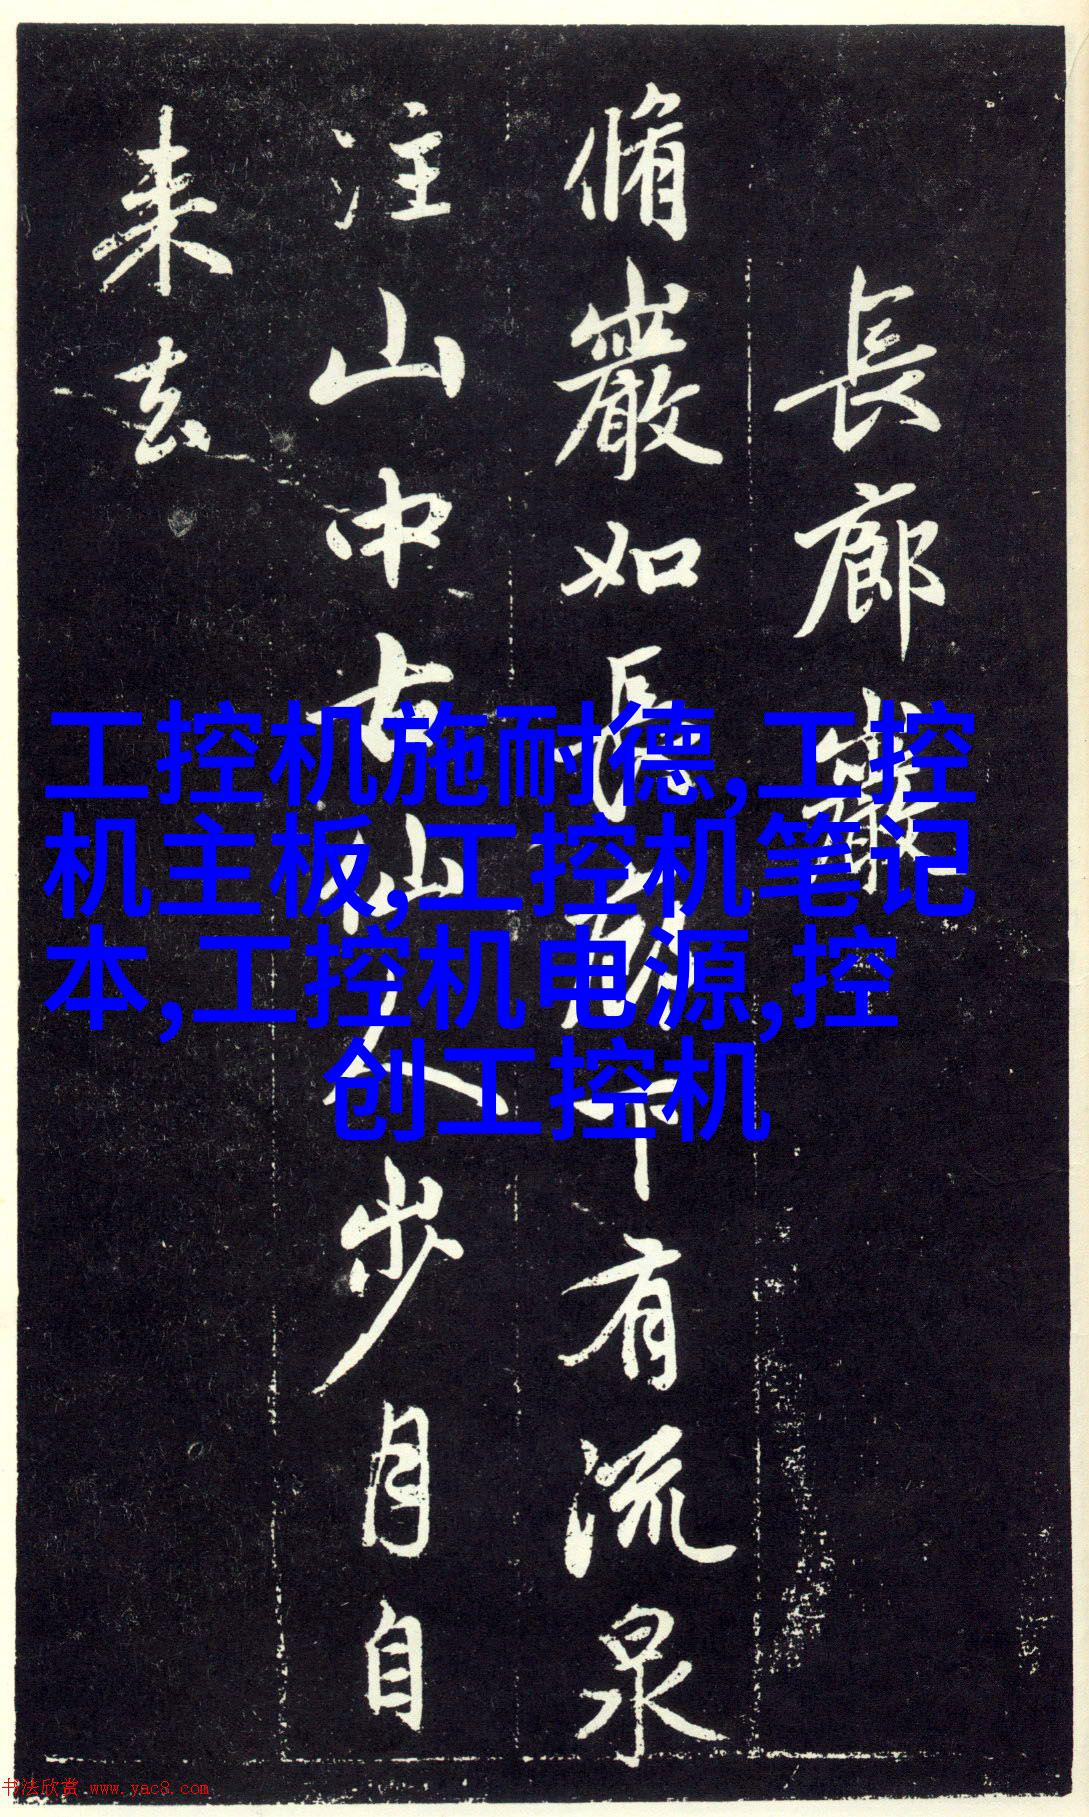 長廊巖
脩巖如長廊下有流泉
注山中古仙人步月自
来去
工控机施耐德,工控
机主板,工控机笔记
本,工控机电源,控
创工控机
书法欣赏 www.yac8.com